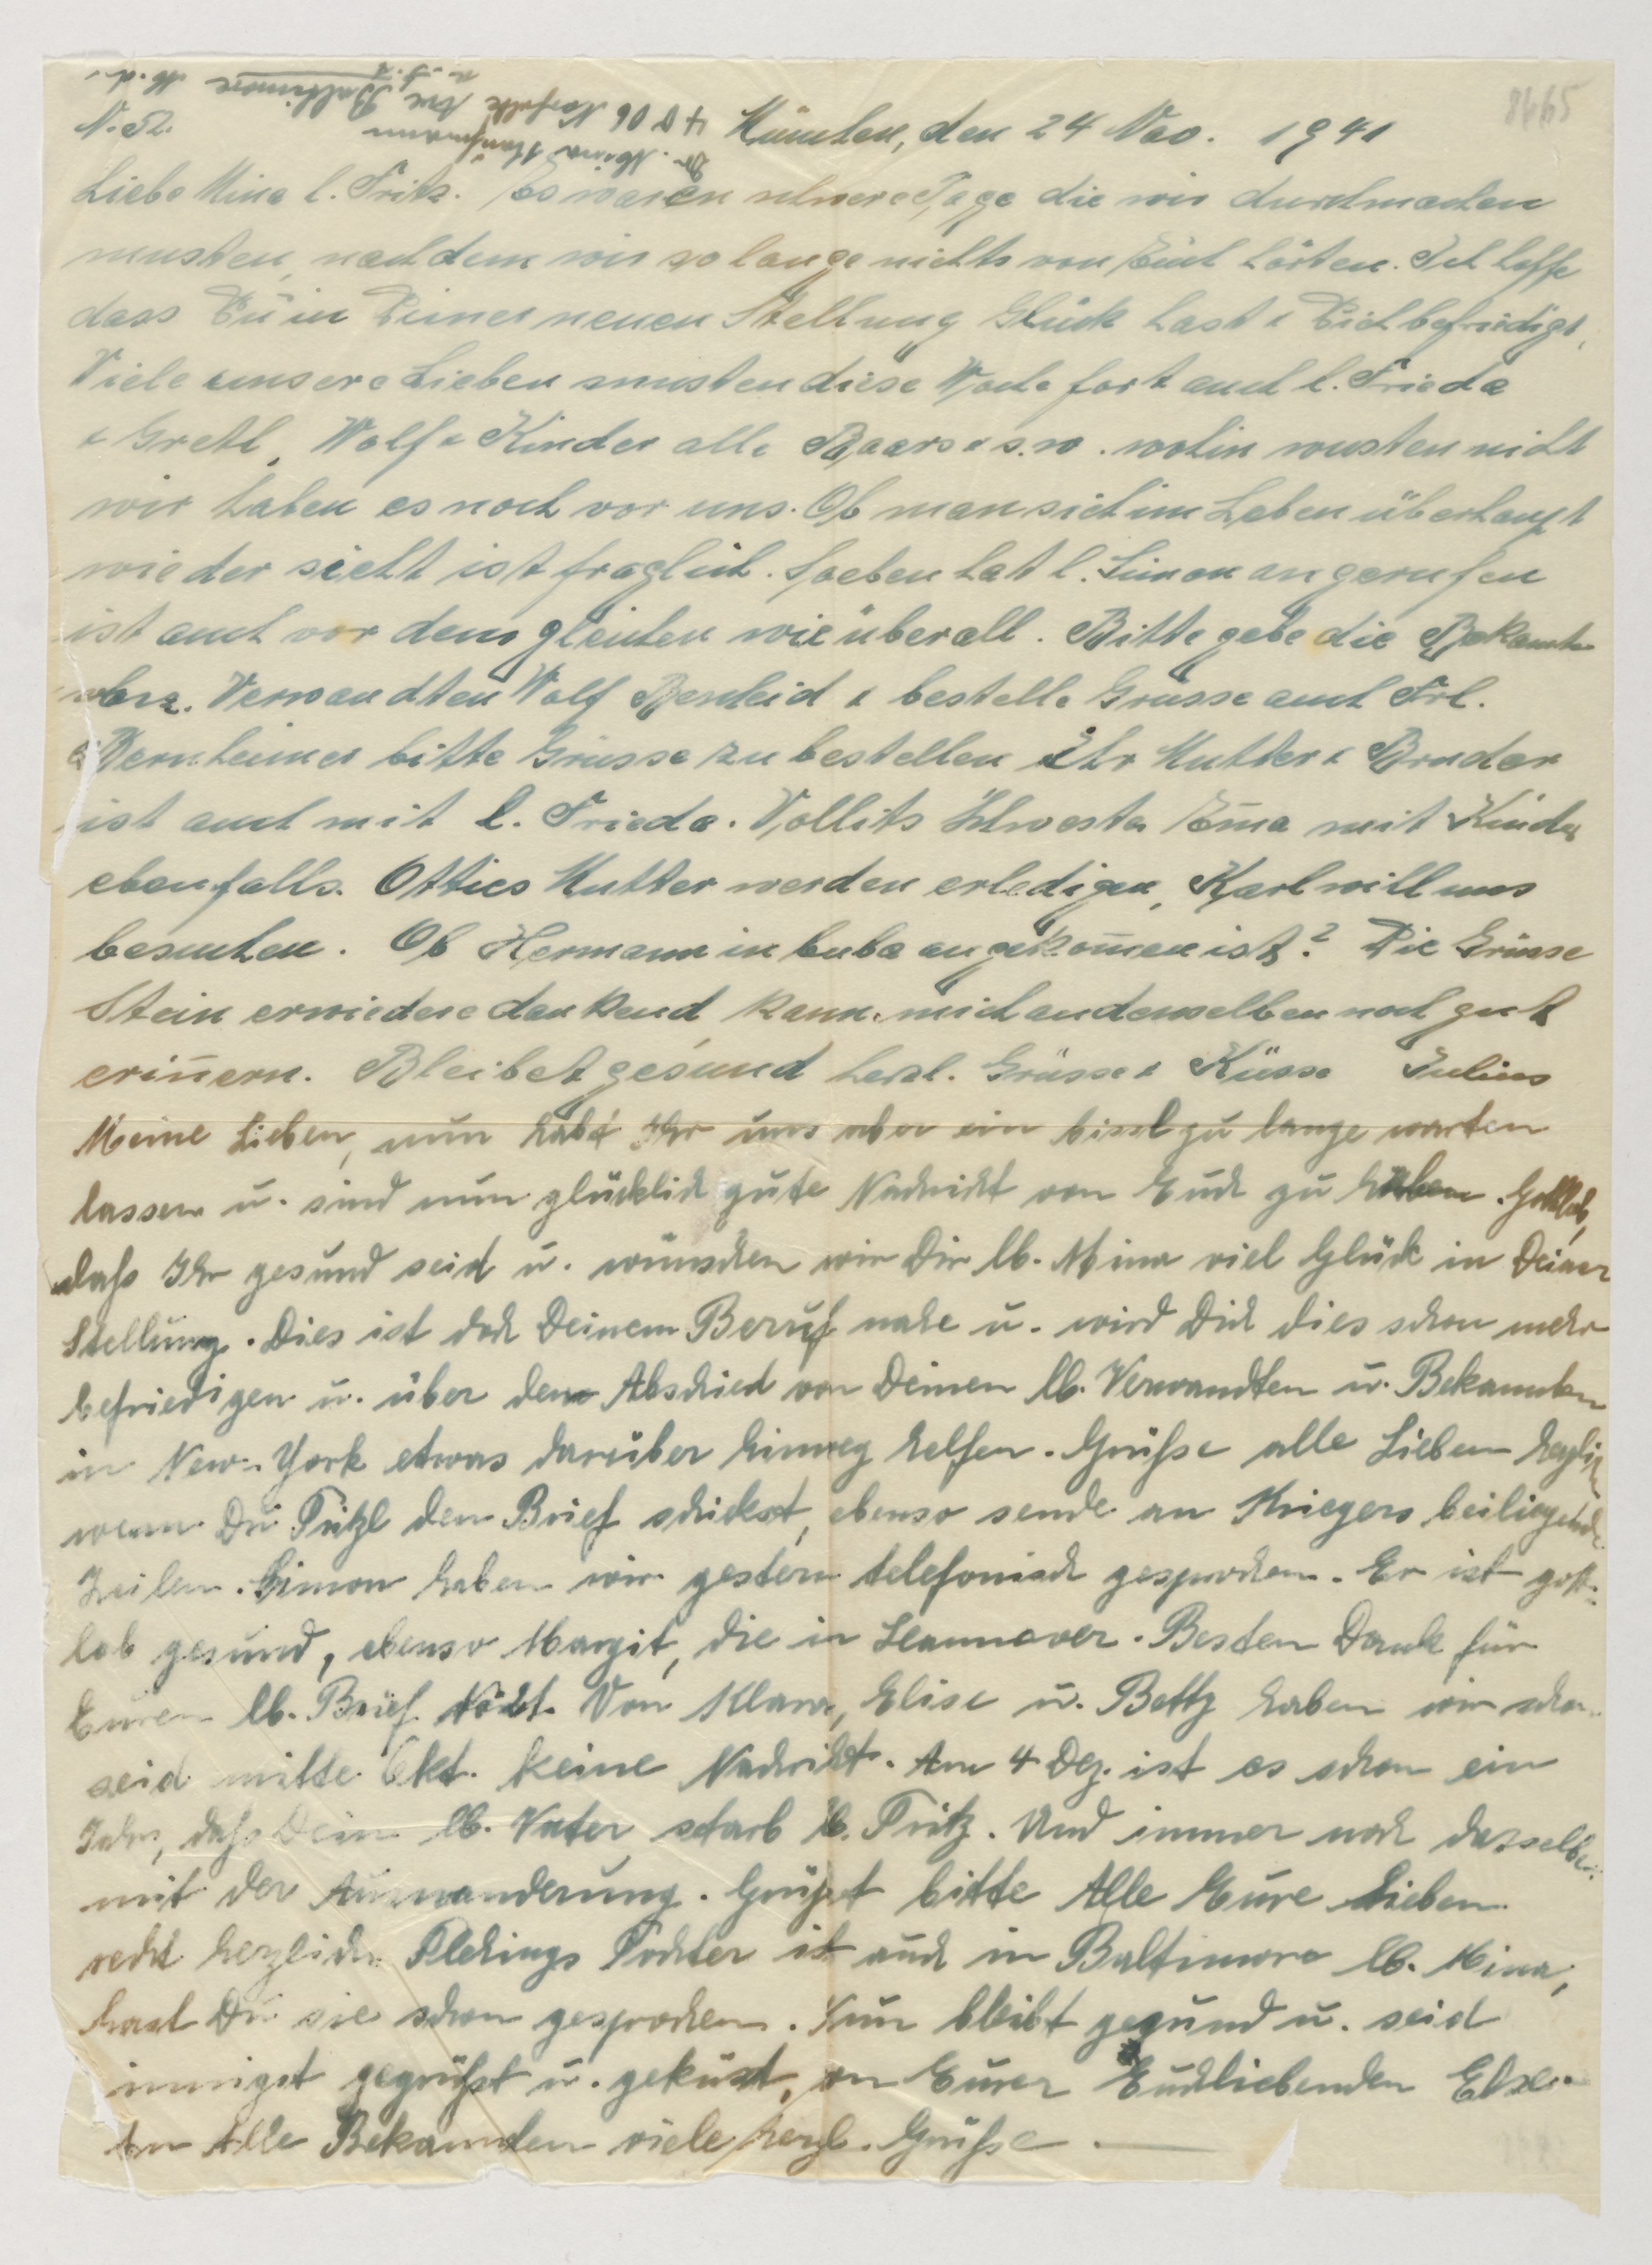 8665
Dr. Mina Kaufmann
4006 Norfolk Ave Baltimore M.d.
U.S.A.
N. 52.
München, den 24 Nov. 1941
Liebe Mina l. Fritz. Es waren schwere Tage die wir durchmachen
musten, nachdem wir so lange nichts von Euch hörten. Ich hoffe
dass Du in Deiner neuen Stellung Glück hast & Dich befriedigt,
Viele unsere Lieben musten diese Woche fort auch l. Frieda
& Gretl, Wolf & Kinder alle Baers u s. w. wohin wusten nicht
wir haben es noch vor uns. Ob man sich im Leben überhaupt
wieder sieht ist fraglich. Soeben hat l. Simon angerufen
ist auch vor dem gleichen wie überall. Bitte gebe die Bekannte
bez. Verwandten Wolf Bescheid & bestelle Grüsse auch Frl.
Bernheimer bitte Grüsse zu bestellen ihr Mutter & Bruder
ist auch mit l. Frieda. Schwester Em̄a mit Kinder
ebenfalls. Otties Mutter werden erledigen, Karl will uns
besuchen. Ob Hermann in Cuba angekom̄en ist? Die Grüsse
Stein erwiedere dankend kann mich an denselben noch gut
erin̄ern. Bleibet gesund herzl. Grüsse & Küsse Julius
Meine Lieben, nun habt Ihr uns aber ein bissl zu lange warten
lassen u. sind nun glücklich gute Nachricht von Euch zu haben. Gottlob,
dass Ihr gesund seid u. wünschen wir Dir lb. Mina viel Glück in Deiner
Stellung. Dies ist doch Deinem Beruf nahe u. wird Dich dies schon mehr
befriedigen u. über den Abschied von Deinen lb. Verwandten u. Bekannten
in New-York etwas darüber hinweg helfen. Grüße alle Lieben herzlich
wenn Du Fritzl den Brief schickst, ebenso sende an Kriegers beiliegende
Zeilen. Simon haben wir gestern telefonisch gesprochen. Er ist gott-
lob gesund, ebenso Margit, die in Hannover. Besten Dank für
Euren lb. Brief. Von Klara, Elise u. Betty haben wir schon
seid mitte Okt. keine Nachricht. Am 4 Dez. ist es schon ein
Jahr, daß Dein lb. Vater starb lb. Fritz. Und immer noch dasselbe
mit der Auswanderung. Grüßt bitte Alle Eure Lieben
recht herzlich. Tochter ist auch in Baltimore lb. Mina,
hast Du sie schon gesprochen. Nun bleibt gesund u. seid
innigst gegrüßt u. geküsst, von Eurer Euchliebenden Else.
An Alle Bekannten viele herzl. Grüße.